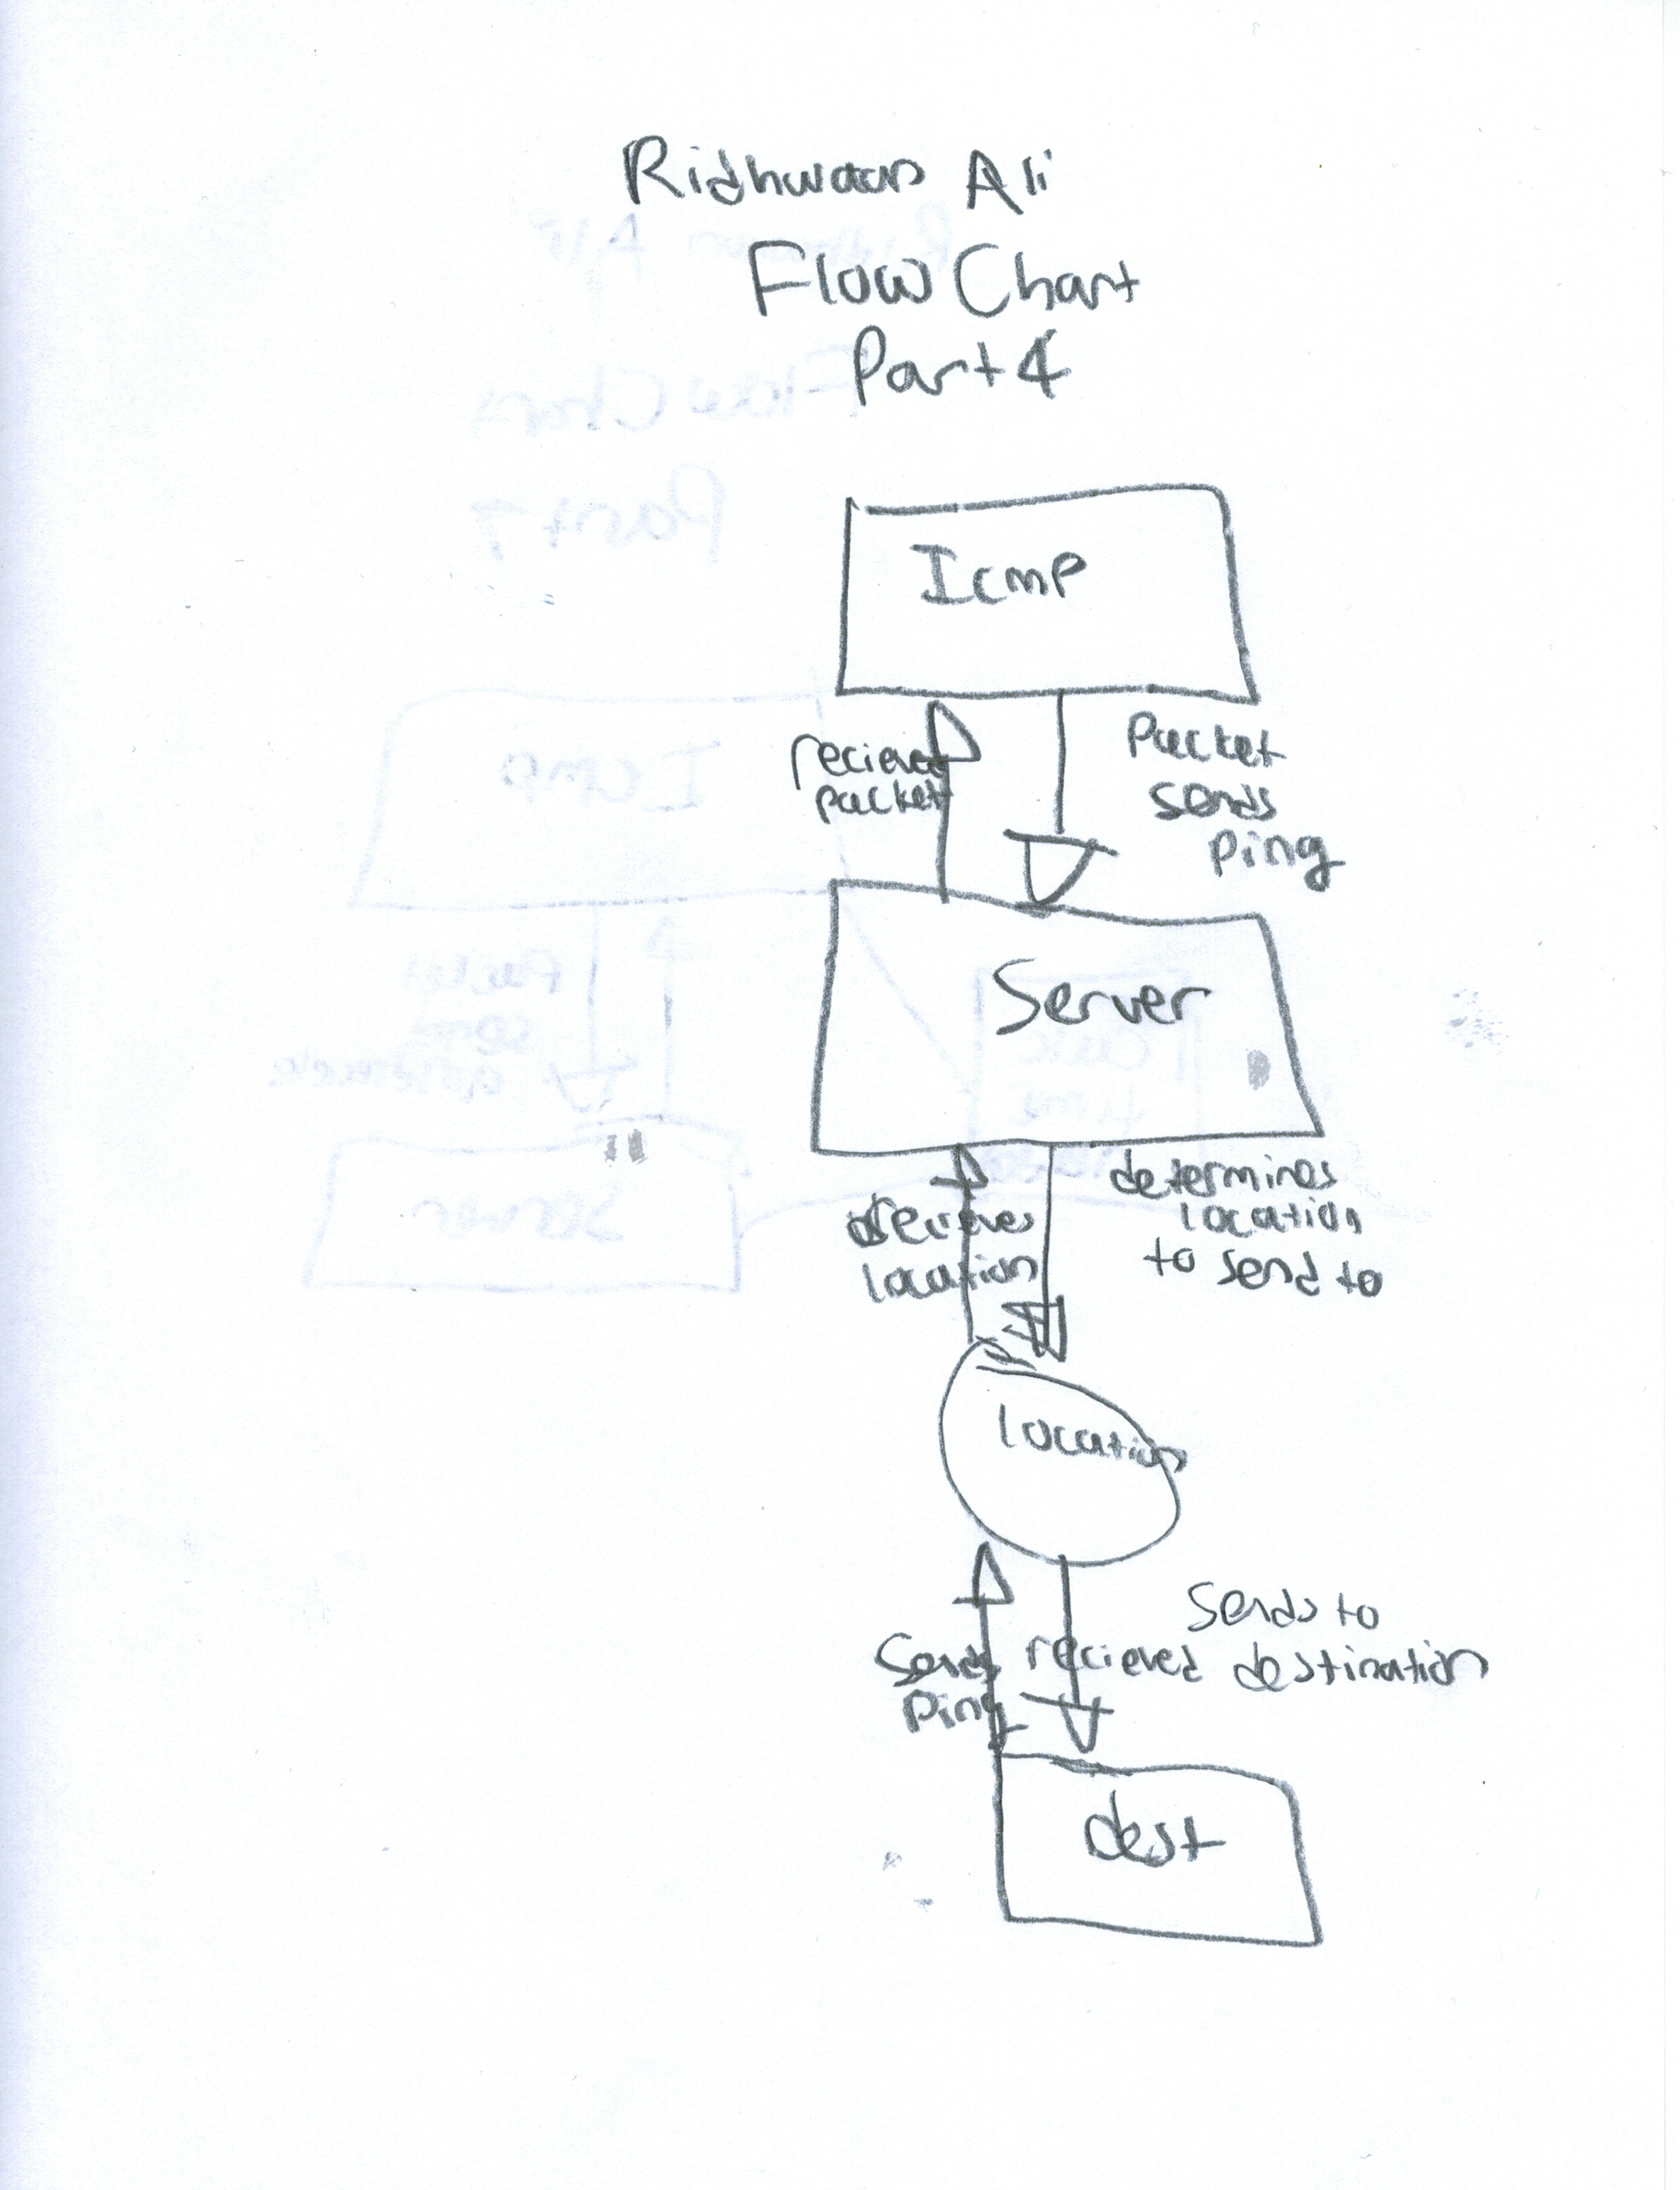 Ridhwaan Ali
Flow Chart
Part 4
Icmp
recieved
packet
Packet
sends
Ping
Server
recieves
location
determines
location
to send to
location
Sends
Ping
Sends to
recieved destination
dest